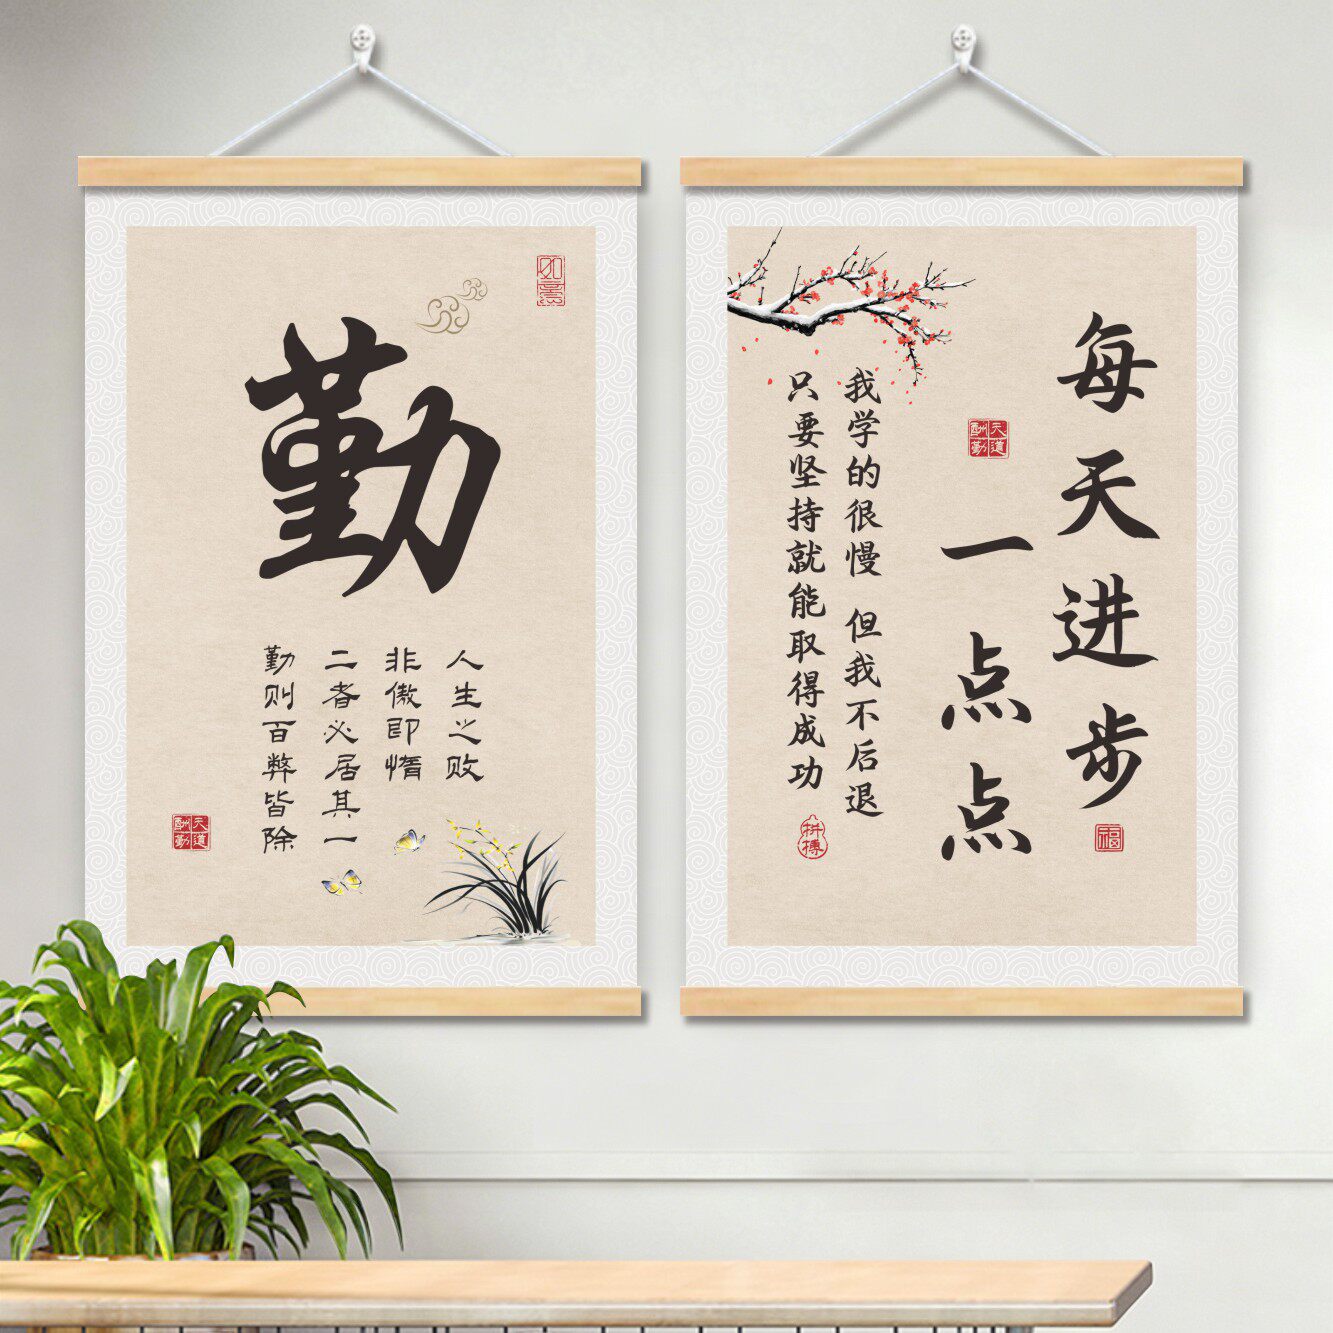 勤
人生之败
非傲即惰
二者必居其一
勤则百弊皆除
如意
天道酬勤
每天进步
一点点
天道酬勤
福
我学的很慢 但我不后退
只要坚持就能取得成功
拼搏